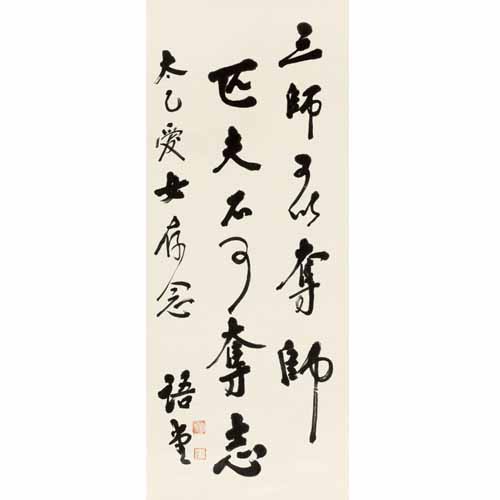 三師可以奪帥
匹夫不可奪志
太乙愛女存念
語堂